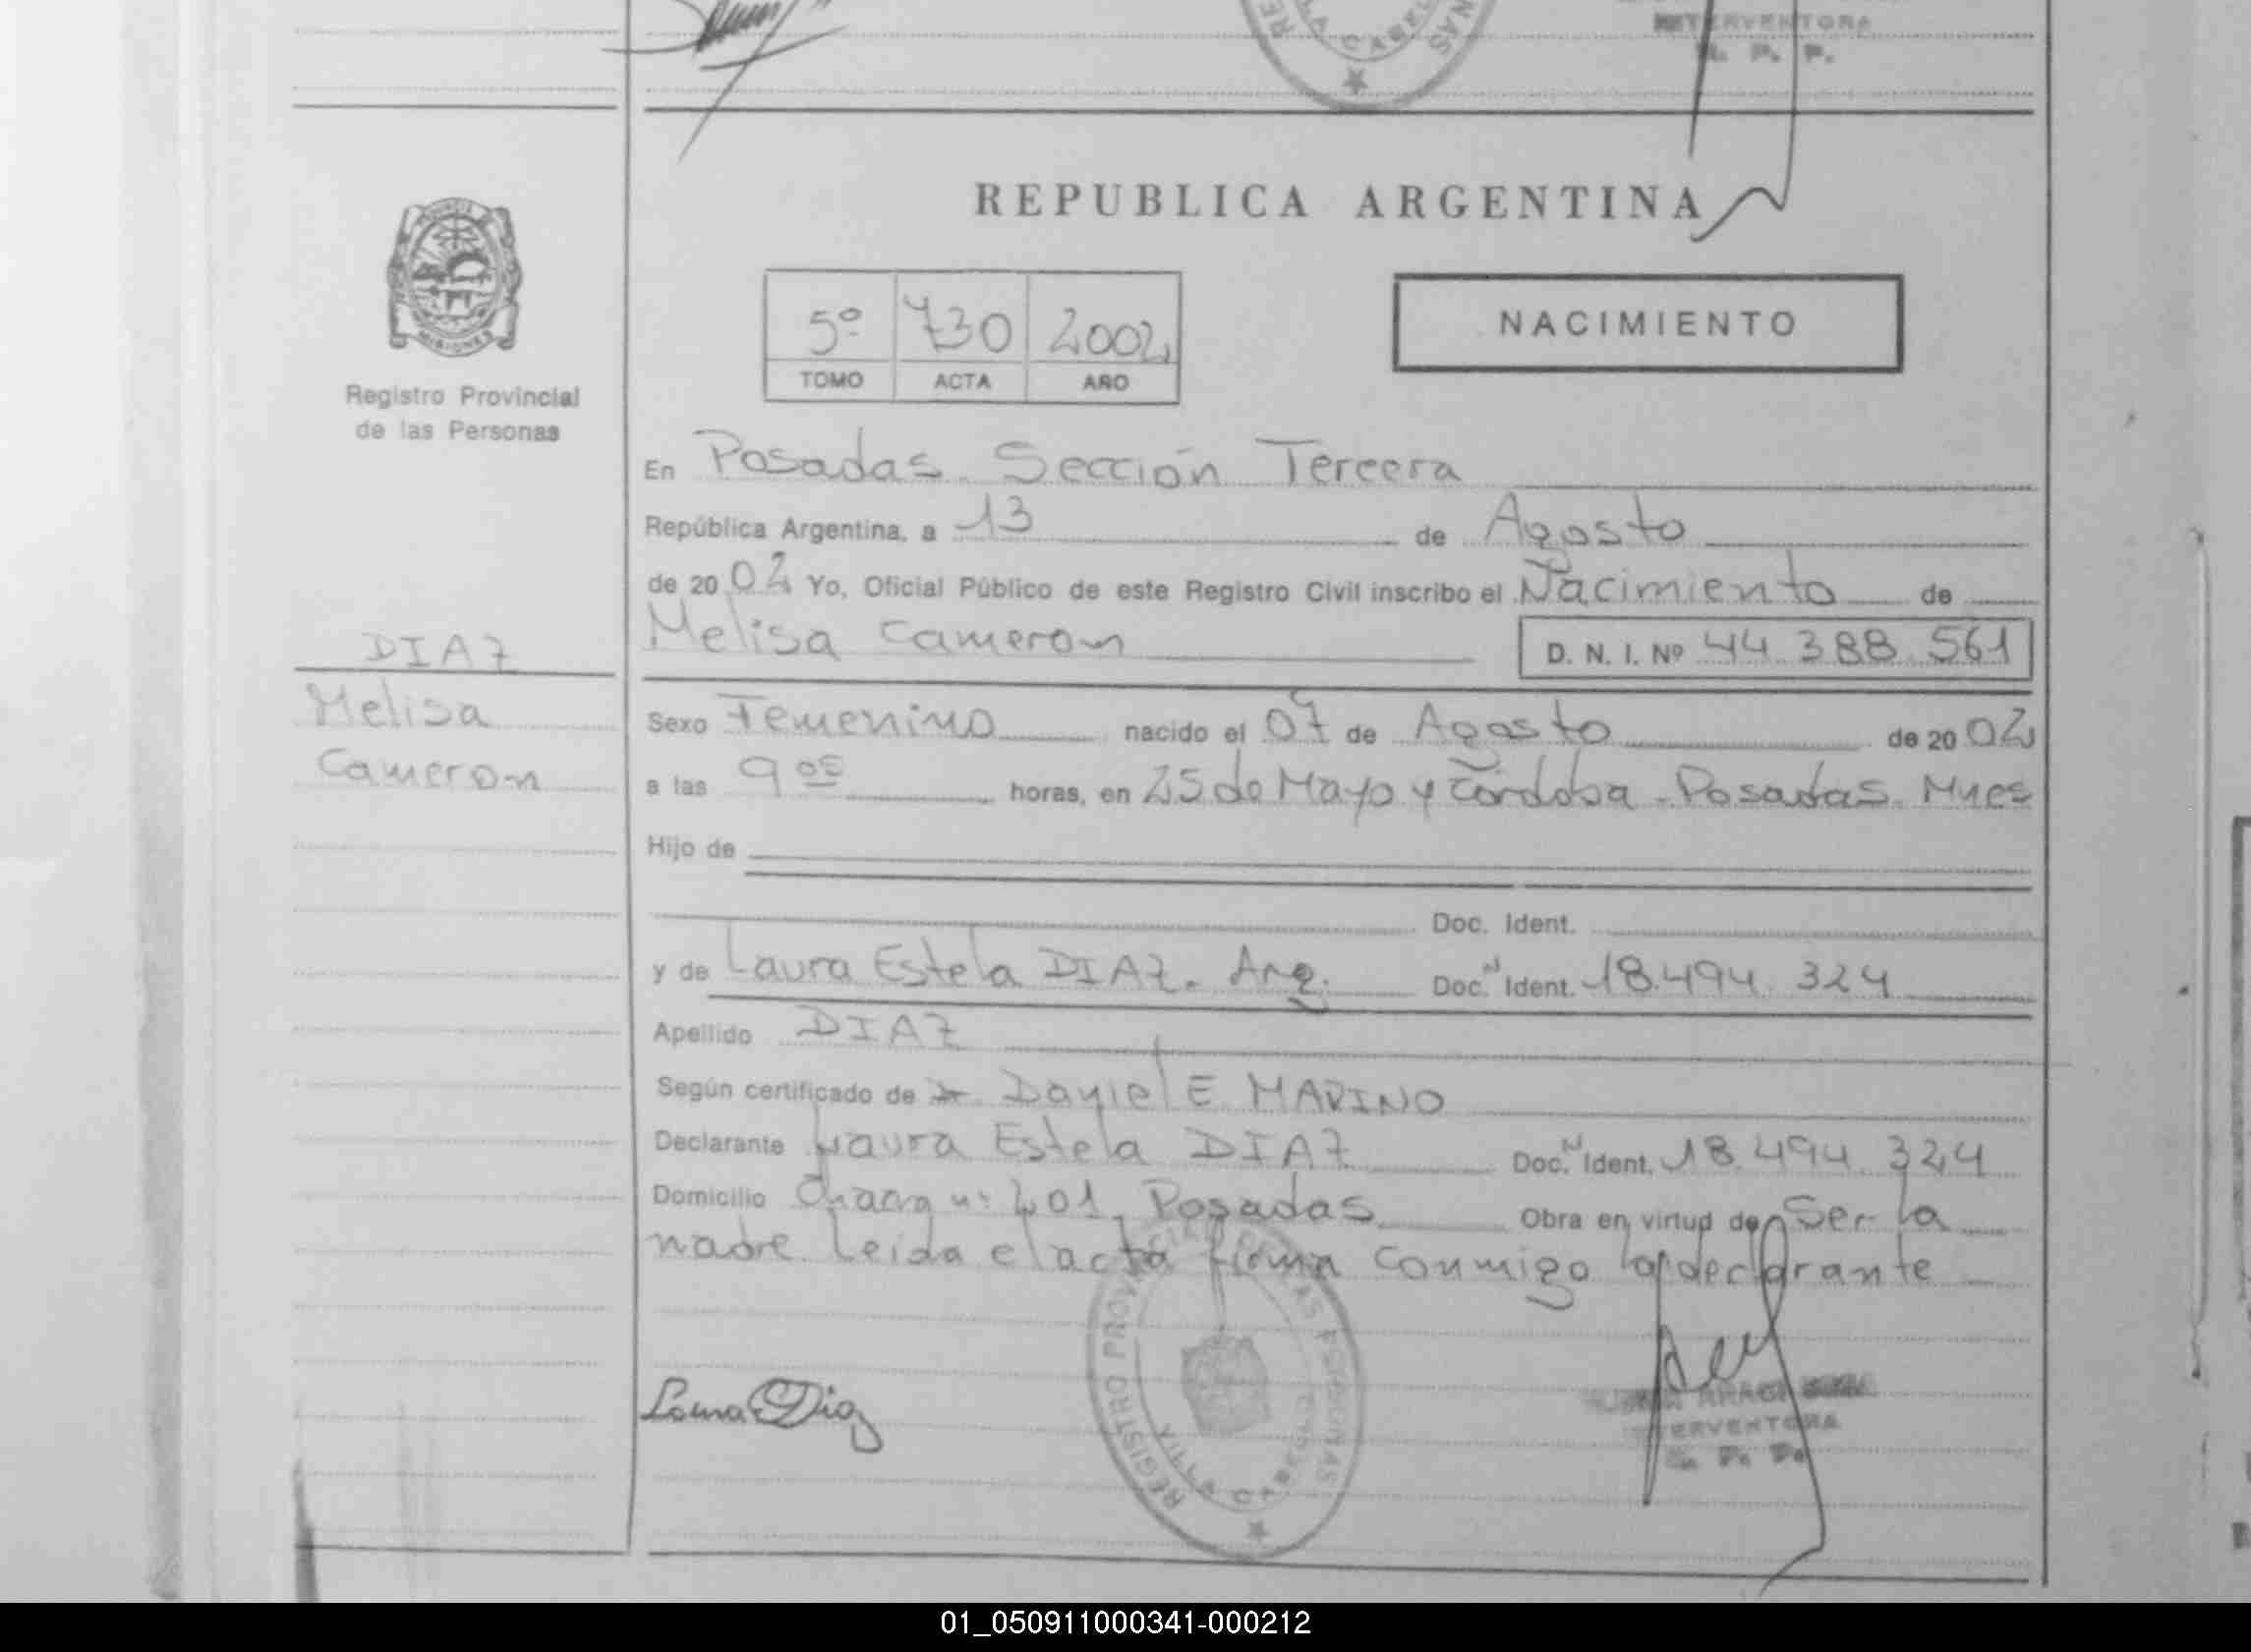 INTERVENTORA
R. P. P.
REPUBLICA ARGENTINA
5º 730 2002
TOMO ACTA AÑO
NACIMIENTO
PROVINCIA
MISIONES
Registro Provincial
de las Personas
En Posadas. Sección Tercera
República Argentina, a 13 de Agosto
de 2002 Yo, Oficial Público de este Registro Civil inscribo el Nacimiento de
Melisa Cameron D. N. I. Nº 44.388.561
DIAZ
Melisa
Cameron
Sexo Femenino nacido el 07 de Agosto de 2002
a las 9 05 horas, en 25 de Mayo y Córdoba - Posadas. Mnes
Hijo de
Doc. Ident.
y de Laura Estela DIAZ. Arg. Doc. N Ident. 18.494.324
Apellido DIAZ
Según certificado de Dr. Daniel E MARINO
Declarante Laura Estela DIAZ Doc. N Ident. 18.494.324
Domicilio Chacra nº 201. Posadas Obra en virtud de Ser la
madre. Leida el acta firma conmigo la declarante
REGISTRO PROVINCIAL DE LAS PERSONAS
VILLA CABELLO
Laura Diaz
INTERVENTORA
R. P. P.
01_050911000341-000212